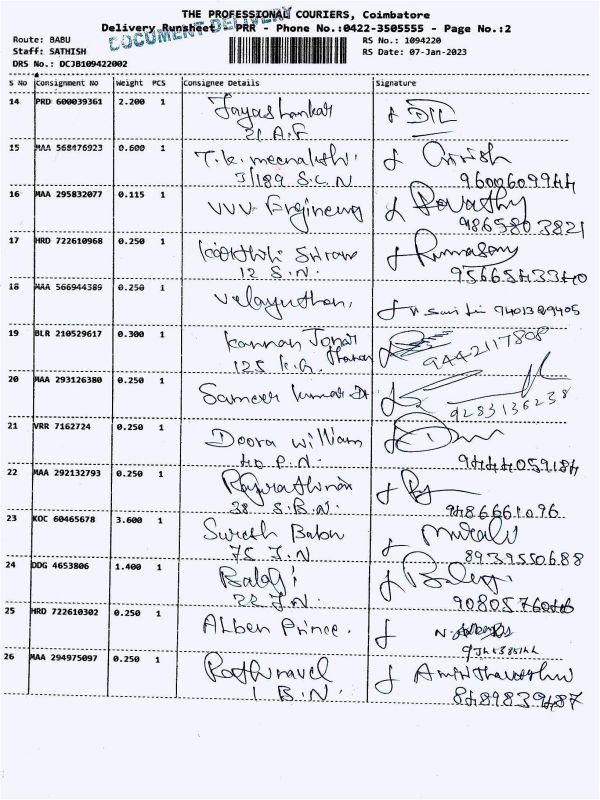 THE PROFESSIONAL COURIERS, Coimbatore
DOCUMENT DELIVERY
Delivery Runsheet - PRR - Phone No.:0422-3505555 - Page No.:2
Route: BABU
Staff: SATHISH
DRS No.: DCJB109422002
RS No.: 1094220
RS Date: 07-Jan-2023
S No Consignment No Weight PCS Consignee Details Signature
14 PRD 600039361 2.200 1 Jayashankar DIL
21 A.F
15 MAA 568476923 0.600 1 T.K. meenakshi Girish
3/189 S.C.N 9600609944
16 MAA 295832077 0.115 1 VVV Revathy
9865803821
17 HRD 722610968 0.250 1
12 S.N. 9566543340
18 MAA 566944389 0.250 1 Velayuthan, 9401329405
19 BLR 210529617 0.300 1 Kannan
125 K.G. 9442117808
20 MAA 293126380 0.250 1 Sameer Kumar Dr 9283136238
21 VRR 7162724 0.250 1 Doora William
40 P.N. 9444059184
22 MAA 292132793 0.250 1
38 S.B.N. 9486661096
23 KOC 60465678 3.600 1 Suresh Babu Murali
75 J.N 8939550688
24 DDG 4653806 1.400 1 Balaji Balaji
22 J.N.
25 HRD 722610302 0.250 1 Alben Prince.
26 MAA 294975097 0.250 1
1 B.N. 8489839487